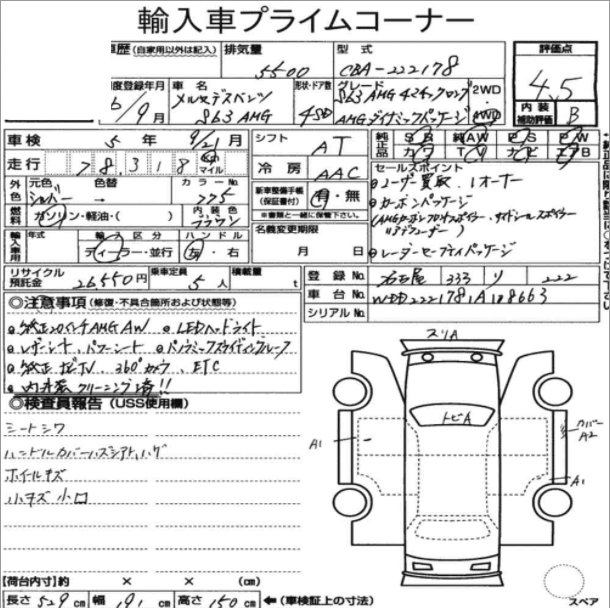 輸入車プライムコーナー
車歴 (自家用以外は記入) 排気量 5500 型式 CBA-222178 評価点 4.5
年度登録年月 6/9月 車名 メルセデスベンツ S63 AMG 形状・ドア数 4SD グレード S63 AMG 4マチックロング AMGダイナミックパッケージ 2WD 4WD 内装補助評価 B
車検 5年 9/21月 シフト AT 純正品 SR 純AW PS PW
走行 78,318 km マイル 冷房 AAC カワ TV ナビ エアB
外色 元色 シルバー 色替 → カラーNo. 775 新車整備手帳(保証書付) 有・無 セールスポイント
燃料 ガソリン・軽油・( ) 内装色 ブラウン ※書類と一緒に保管して下さい。
⦿ユーザー買取、1オーナー
⦿カーボンパッケージ
輸入車用 年式 輸入区分 ディーラー・並行 ハンドル 左・右 名義変更期限 月 日
⦿レーダーセーフティパッケージ
リサイクル預託金 26,550円 乗車定員 5人 積載量 t 登録No. 名古屋 333 リ 222
車台No. WDD2221781A108663
シリアルNo.
◎注意事項 (修復・不具合箇所および状態等)
⦿純正20インチAMG AW ⦿LEDヘッドライト
⦿レザーシート、パワーシート ⦿パノラミックスライディングルーフ
⦿純正ナビTV、360°カメラ、ETC
⦿内外装クリーニング済!!
◎検査員報告 (USS使用欄)
シートシワ
ハンドルカバーハズシアト,ハゲ
ホイールキズ
小キズ 小凹
スリA
トビA
A1
カバーA2
A1
スペア
【荷台内寸】約 × × (cm)
長さ 529 cm 幅 191 cm 高さ 150 cm ← (車検証上の寸法)